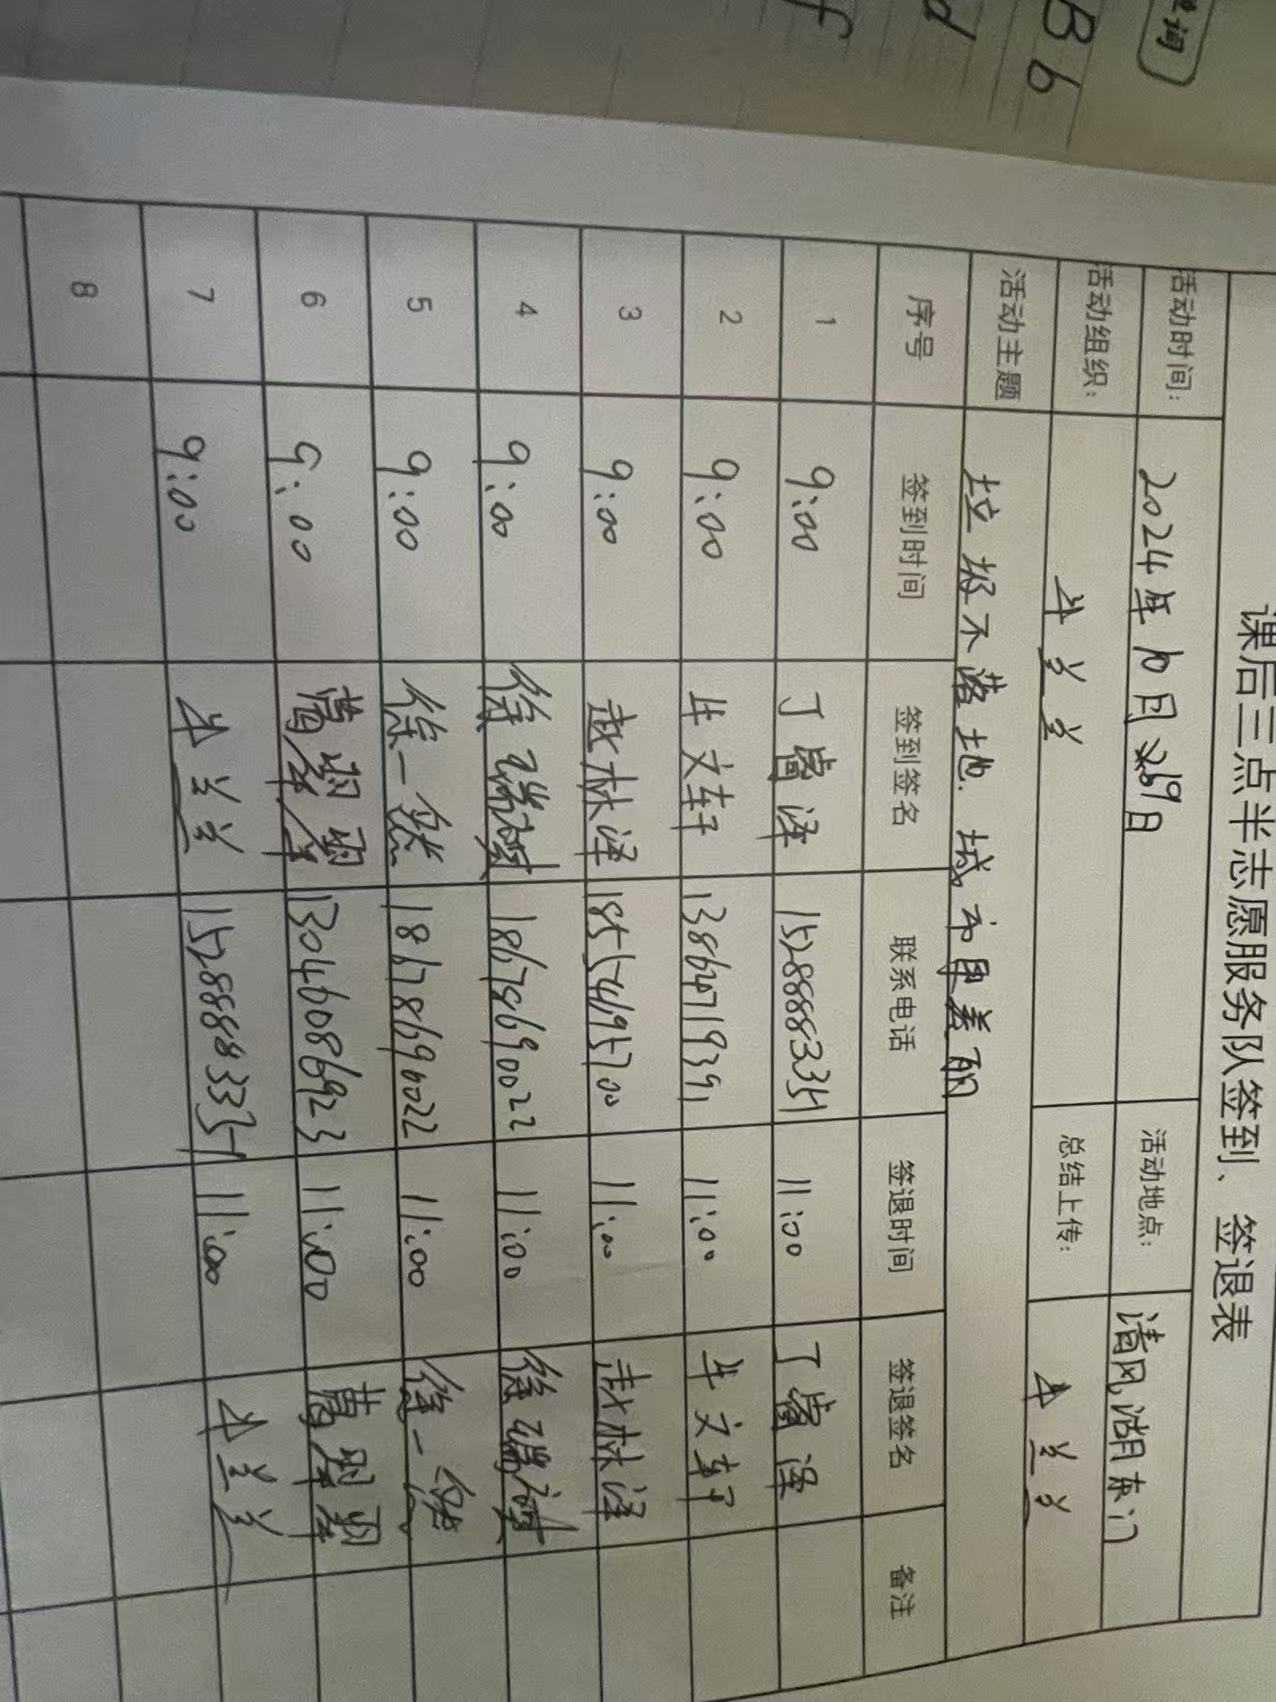 Bb
d
f
课后三点半志愿服务队签到、签退表
活动时间: 2024年10月29日 活动地点: 清风湖东门
活动组织: 牛兰兰 总结上传: 牛兰兰
活动主题 垃圾不落地.城市更美丽
序号 签到时间 签到签名 联系电话 签退时间 签退签名 备注
1 9:00 丁睿泽 15288883351 11:00 丁睿泽
2 9:00 牛文轩 13864719391 11:00 牛文轩
3 9:00 林泽 18554695700 11:00 林泽
4 9:00 徐瑞 18678690022 11:00 徐瑞
5 9:00 徐一然 18678690022 11:00 徐一然
6 9:00 13046086923 11:00
7 9:00 牛兰兰 15288883351 11:00 牛兰兰
8